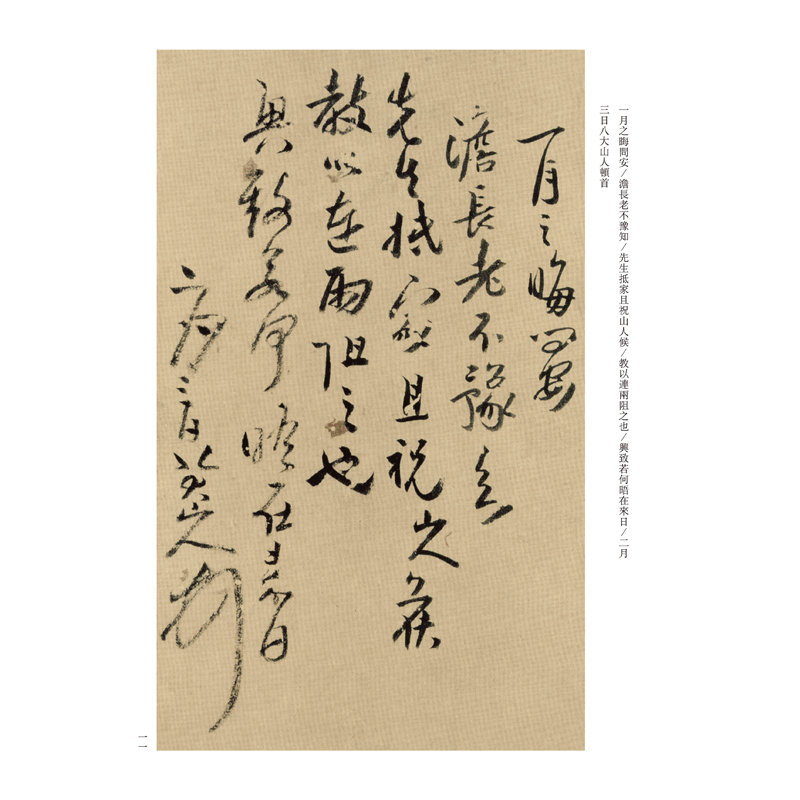 一月之晦問安/澹長老不豫知/先生抵家且祝山人候/教以連兩阻之也/興致若何晤在來日/二月
三日八大山人頓首
一月之晦問安
澹長老不豫知
先生抵家且祝山人候
教以連雨阻之也
興致若何晤在來日
二月三日八大山人頓首
一一